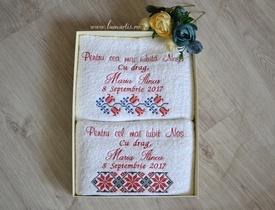 www.lumartis.ro
Pentru cea mai iubită Nașă
Cu drag,
Maria Ilinca
8 Septembrie 2017
Pentru cel mai iubit Naș
Cu drag,
Maria Ilinca
8 Septembrie 2017